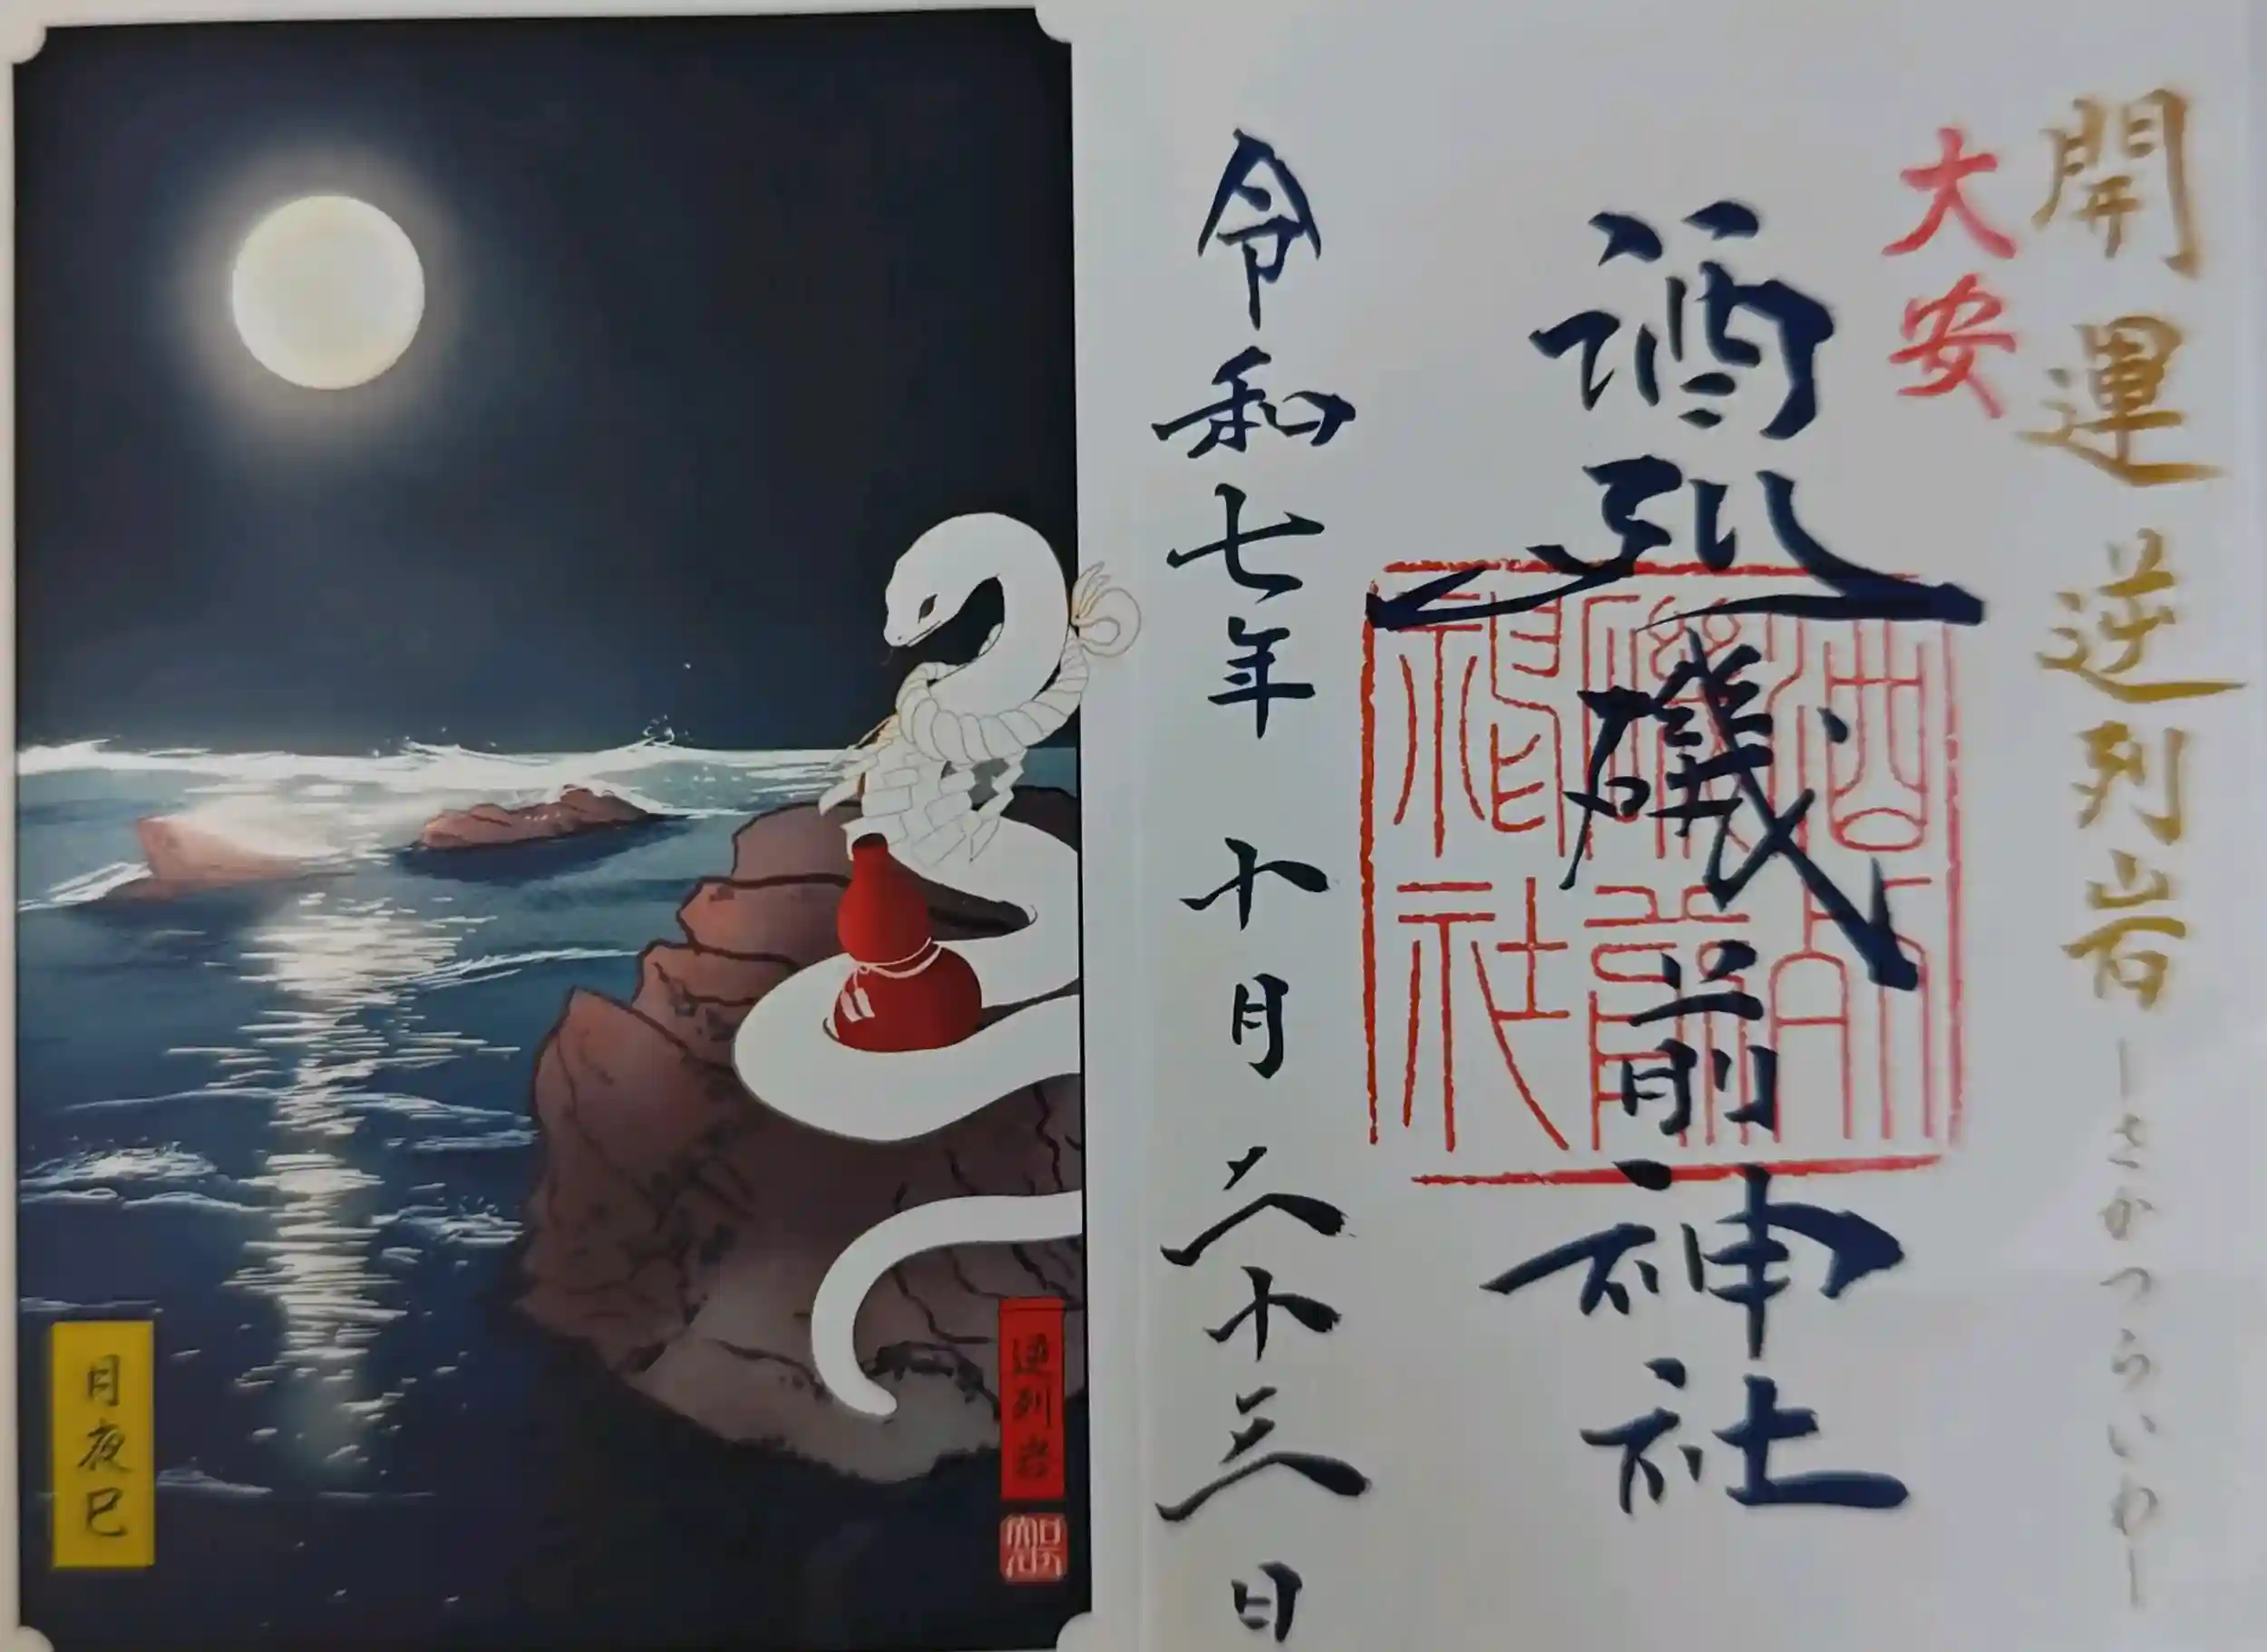 開運 逆列岩 ―さかつらいわ―
大安
酒列磯前神社
酒列磯前神社
令和七年 十月二十三日
逆列岩
月夜巳